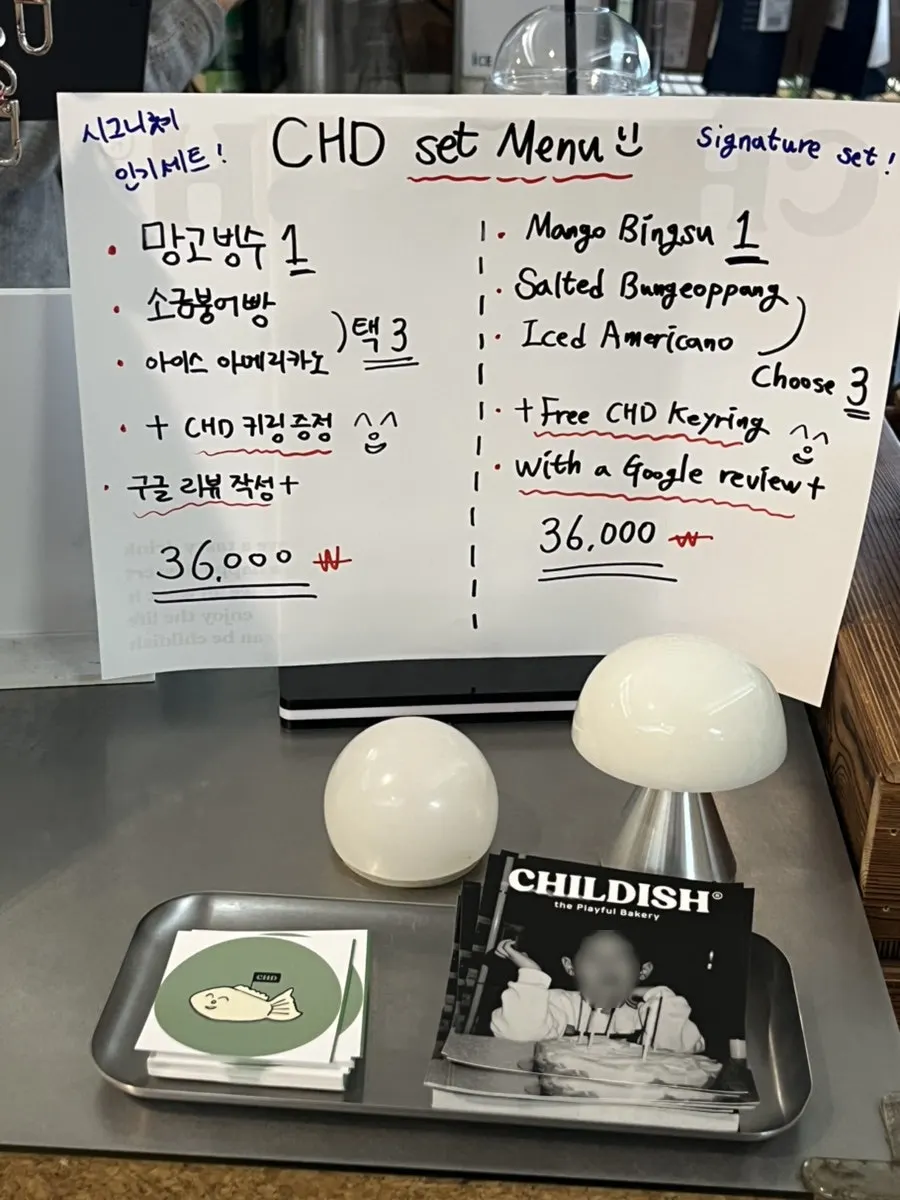 시그니처
인기세트!
CHD set Menu
signature set!
• 망고빙수 1
• 소금붕어빵
• 아이스 아메리카노
) 택 3
• + CHD 키링 증정 ^^
• 구글 리뷰 작성+
36,000 ₩
• Mango Bingsu 1
• Salted Bungeoppang
• Iced Americano
Choose 3
• + Free CHD Keyring ^^
• with a Google review+
36,000 ₩
CHD
CHILDISH®
the Playful Bakery